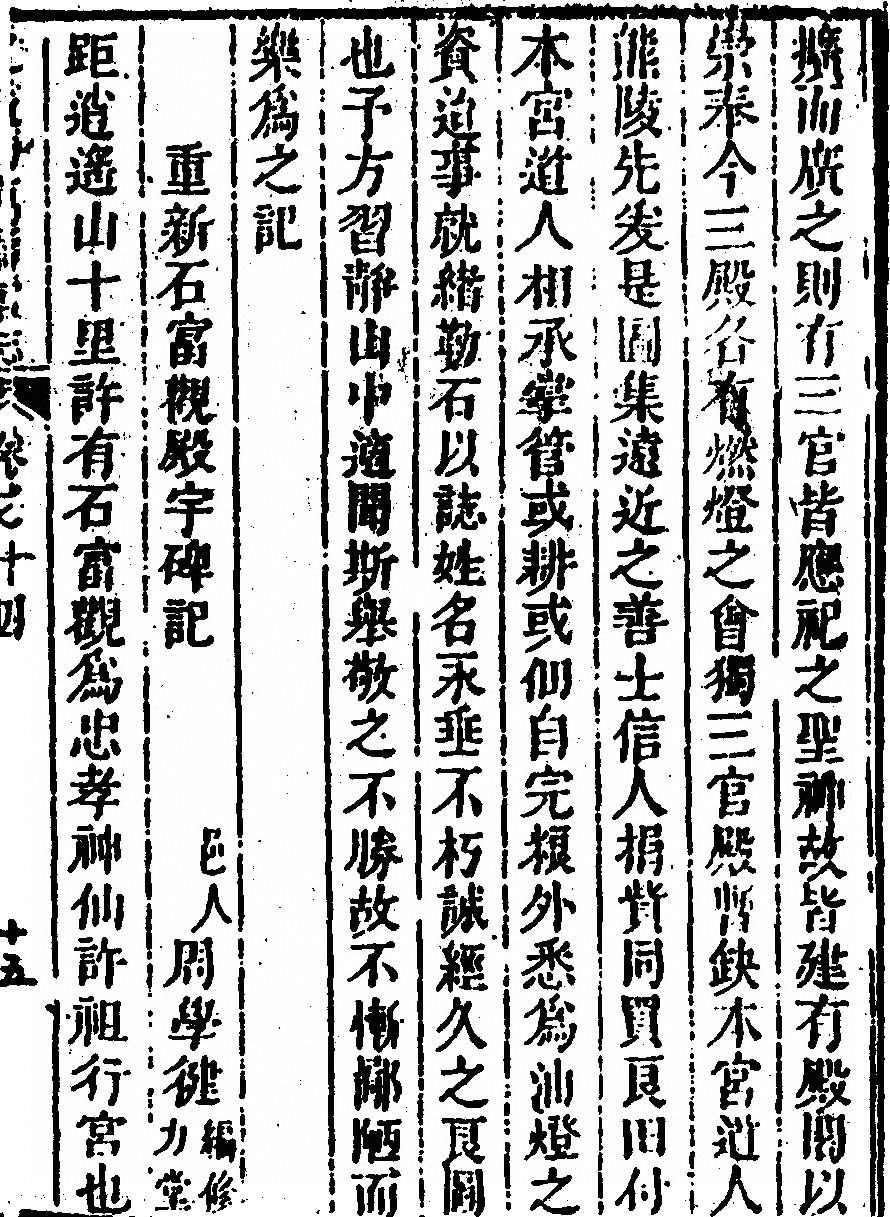 擴而廣之則有三官皆應祀之聖神故皆建有殿閣以
崇奉今三殿各有燃燈之會獨三官殿暫缺本宮道人
熊陵先發是圖集遠近之善士信人捐貲同買良田付
本宮道人相承掌管或耕或佃自完糧外悉為油燈之
資迨事就緒勒石以誌姓名永垂不朽誠經久之良圖
也予方習靜山中適聞斯舉敬之不勝故不慚鄙陋而
樂為之記
重新石富觀殿宇碑記 邑人周學健編修力堂
距逍遙山十里許有石富觀為忠孝神仙許祖行宮也
卷之十四
十五